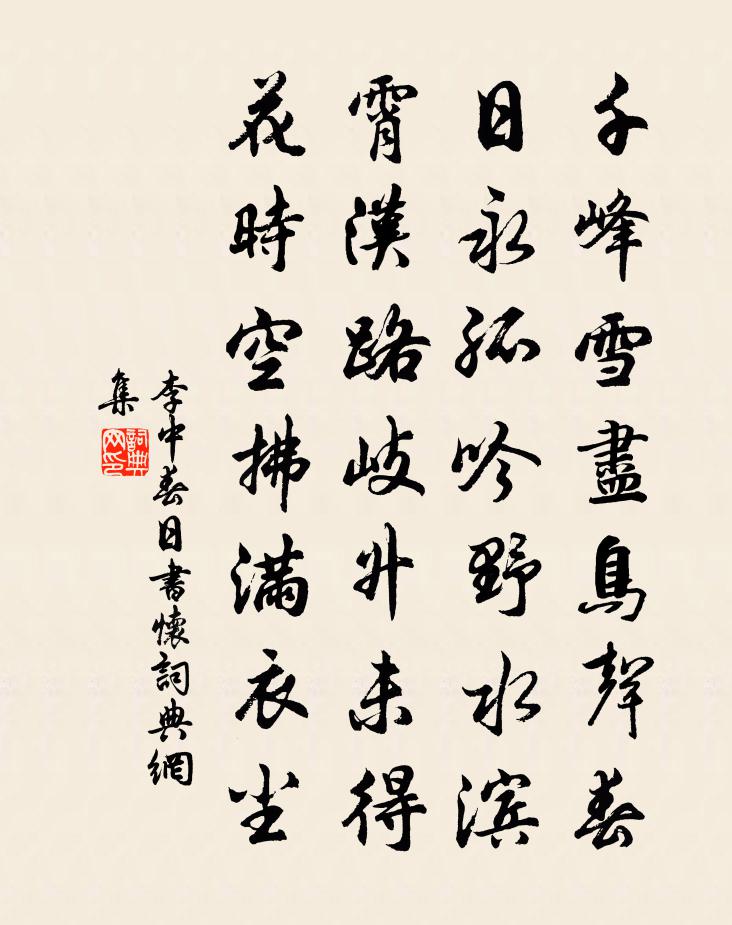 千峰雪盡鳥聲春
日永孤吟野水滨
霄漢路岐升未得
花時空拂滿衣尘
李中春日書懷詞典網
集
詞典
网印